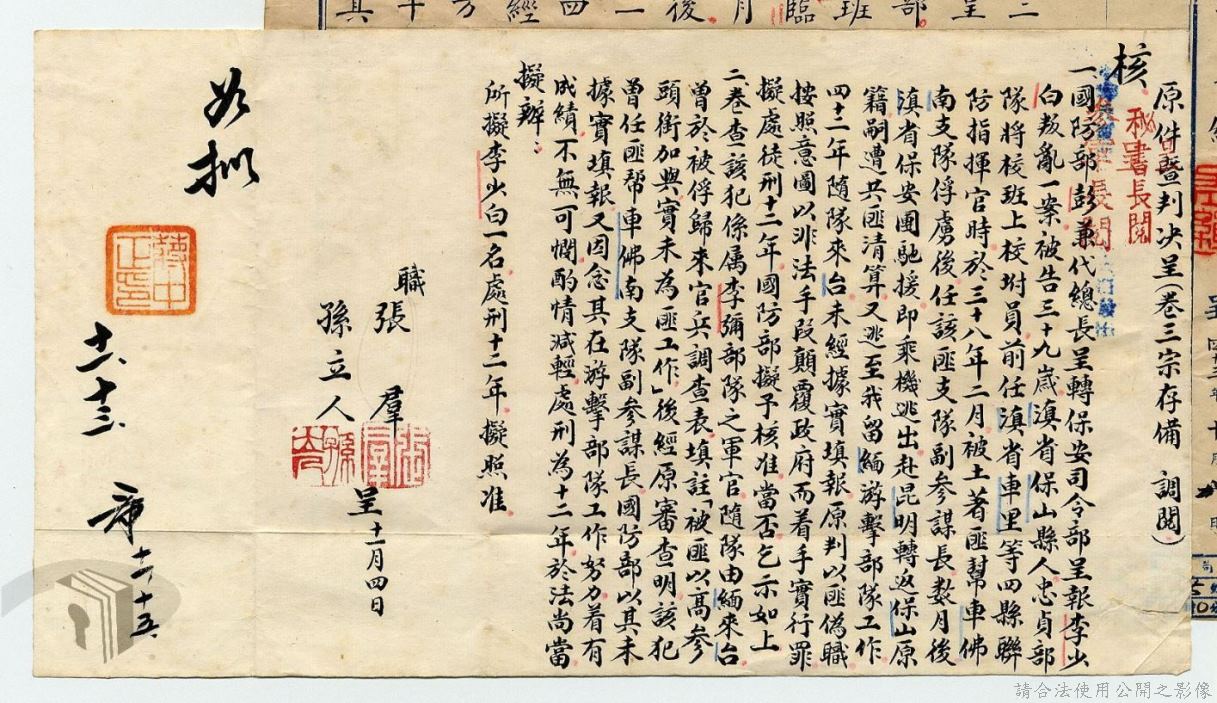 原件暨判決呈（卷三宗存備　調閱）
核
秘書長閱
一、國防部彭兼代總長呈轉保安司令部呈報李少
白叛亂一案被告三十九歲滇省保山縣人忠貞部
隊將校班上校附員前任滇省車里等四縣聯
防指揮官時於三十八年二月被土著匪幫車佛
南支隊俘虜後任該匪支隊副參謀長数月後
滇省保安團馳援即乘機逃出赴昆明轉返保山原
籍嗣遭共匪清算又逃至我留緬游擊部隊工作
四十二年隨隊來台未經據實填報原判以匪偽職
按照意圖以非法手段顛覆政府而着手實行罪
擬處徒刑十二年國防部擬予核准當否乞示如上
二、卷查該犯係属李彌部隊之軍官隨隊由緬來台
曾於被俘歸來官兵調查表填註「被匪以高參
頭銜加與實未為匪工作」後經原審查明該犯
曾任匪帮車佛南支隊副參謀長國防部以其未
據實填報又因念其在游擊部隊工作努力着有
成績不無可憫酌情減輕處刑為十二年於法尚當
擬辦：
所擬李少白一名處刑十二年擬照准
職
張羣
孫立人
呈十一月四日
如擬
蔣中正印
十一、十三、
十一、十五、
請合法使用公開之影像